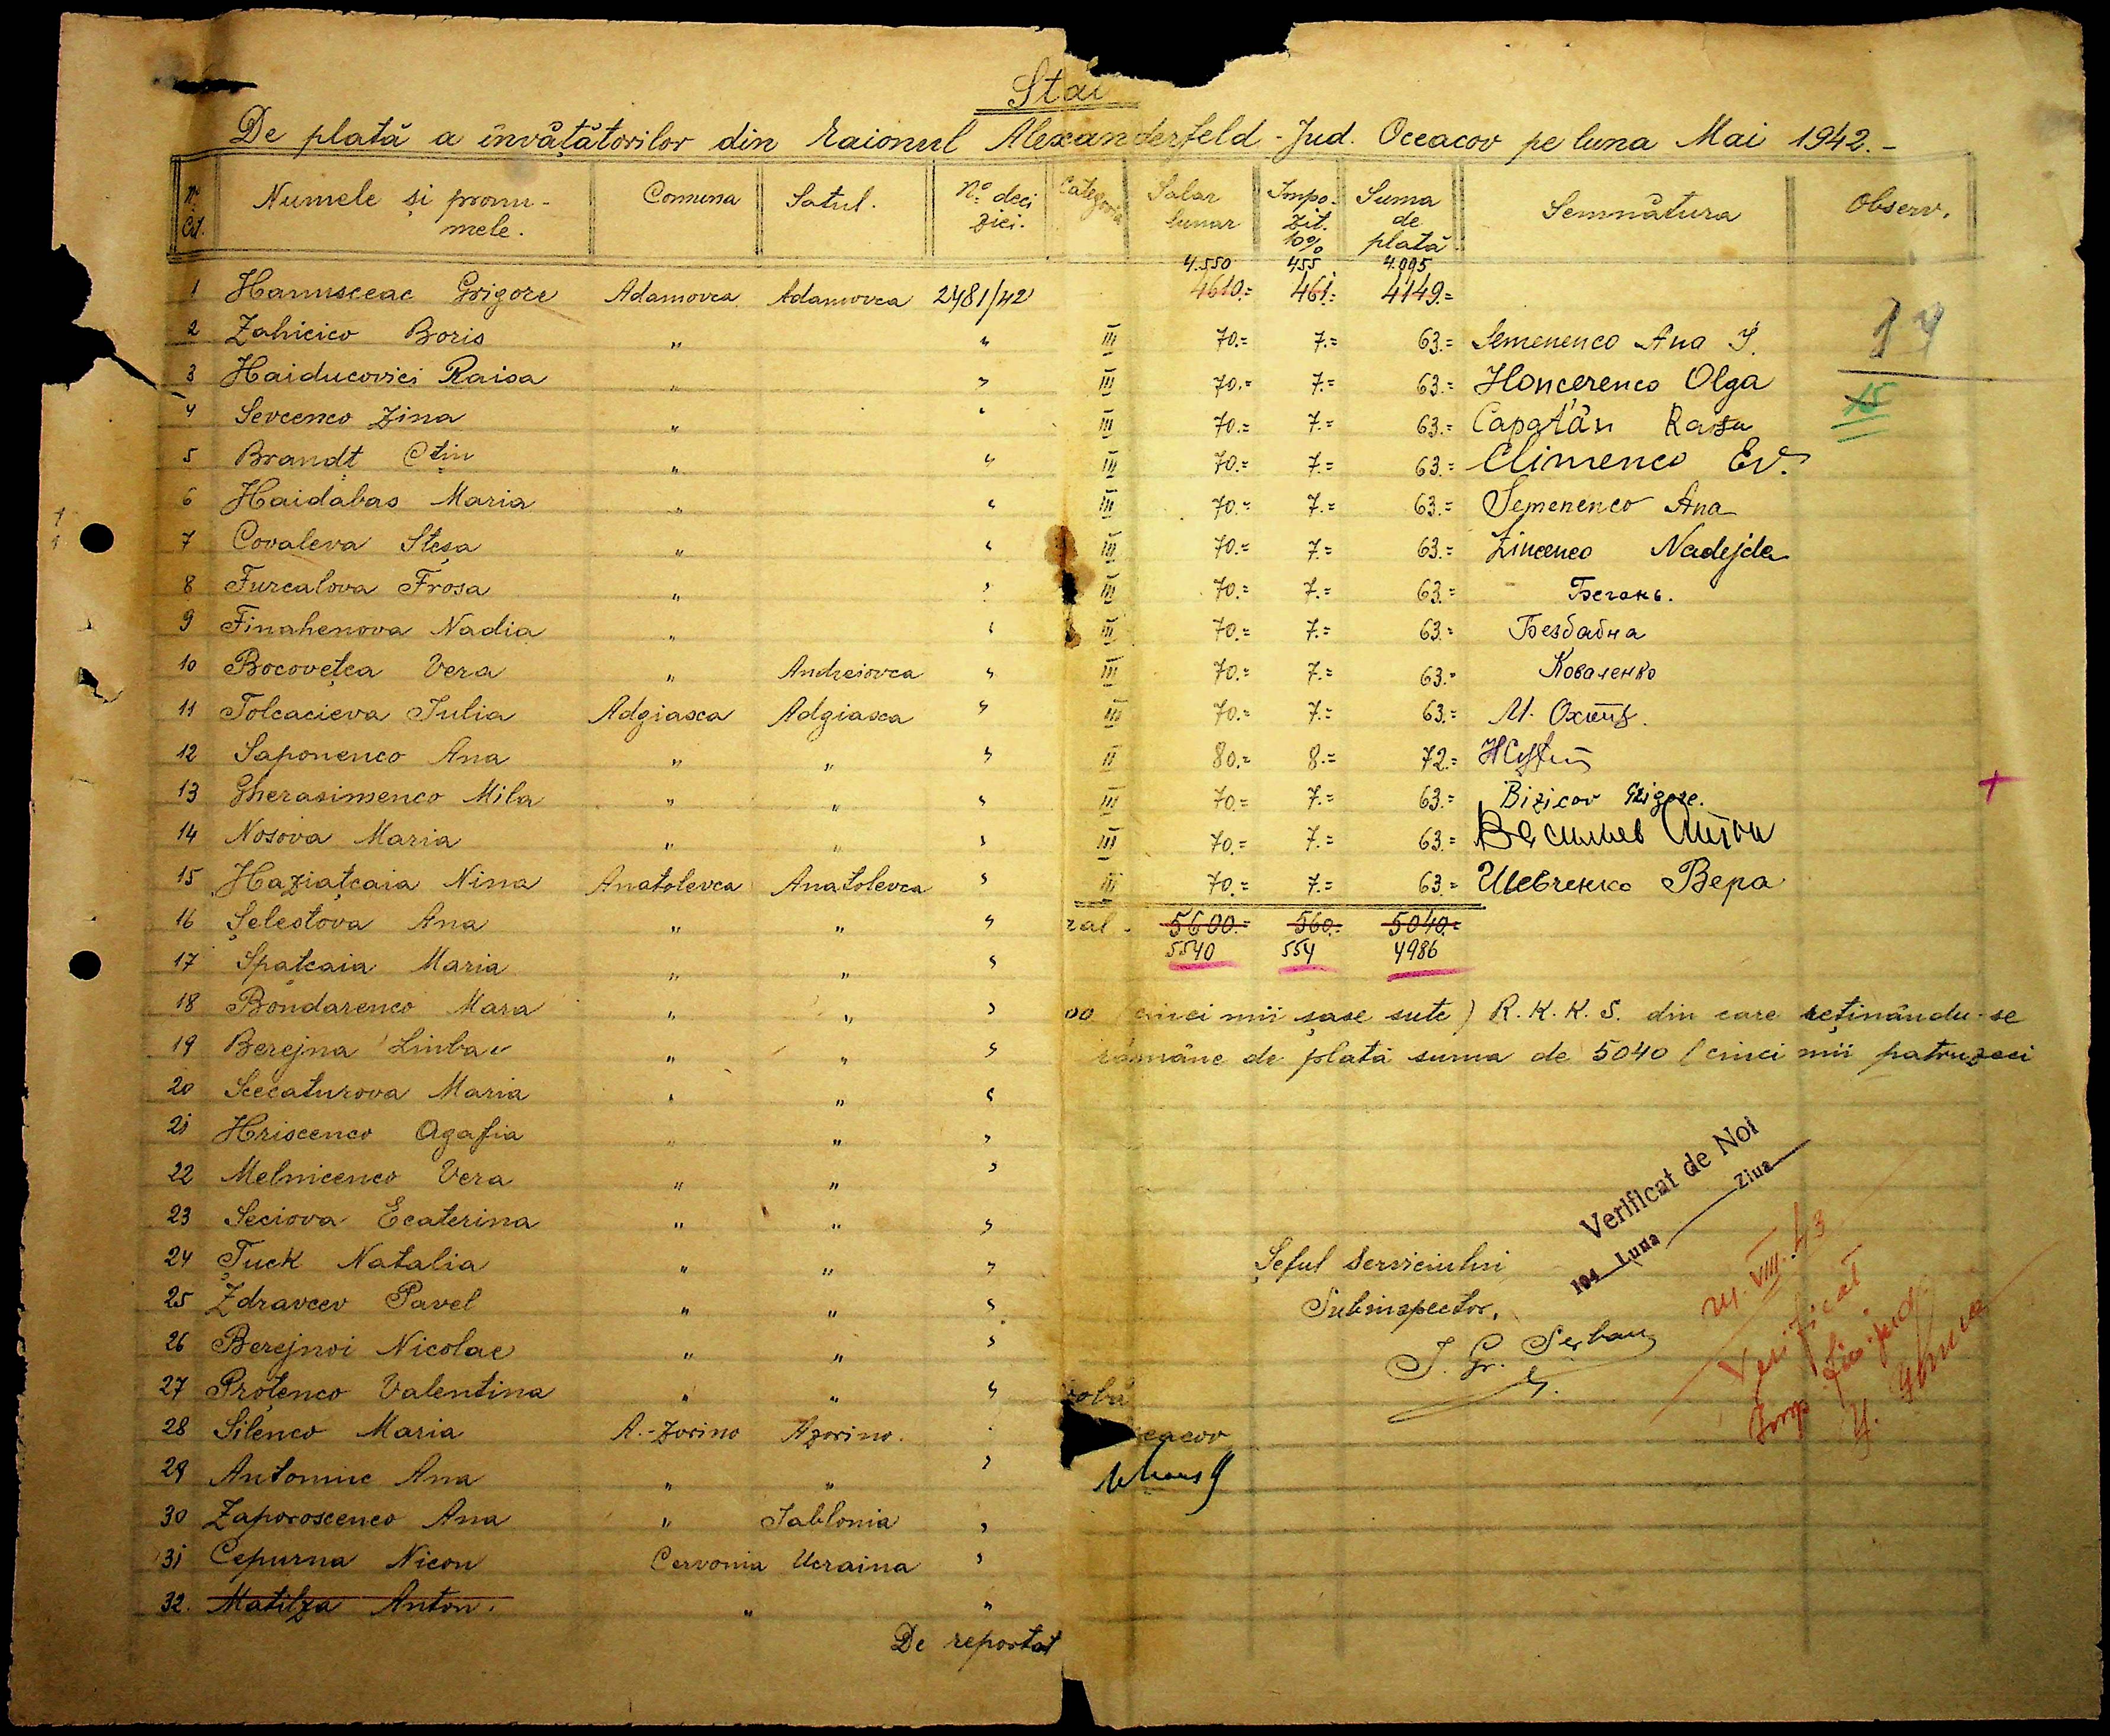 Stat
De plată a învățătorilor din raionul Alexanderfeld - Jud. Oceacov pe luna Mai 1942.-
Nr. Crt. Numele și pronumele. Comuna Satul. Nº deciziei. Categoria Salar lunar Impozit. 10% Suma de plată Semnătura Observ.
4.550 455 4.095
1 Hanusceac Grigore Adamovca Adamovca 2481/42 4610.= 461.= 4149.=
2 Zahicico Boris " " III 70.= 7.= 63.= Semenenco Ana I.
14
3 Haiducovici Raisa " " III 70.= 7.= 63.= Honcerenco Olga
15
4 Sevcenco Zina " " III 70.= 7.= 63.= Capațân Raisa
5 Brandt Ctin " " III 70.= 7.= 63.= Climenco Ev.
6 Haidabas Maria " " III 70.= 7.= 63.= Semenenco Ana
7 Covaleva Steșa " " III 70.= 7.= 63.= Zincenco Nadejda
8 Furcalova Frosa " " III 70.= 7.= 63.= Бегань.
9 Finahenova Nadia " " III 70.= 7.= 63.= Безбабна
10 Bocovețca Vera " Andreiovca " III 70.= 7.= 63.= Коваленко
11 Tolcacieva Iulia Adgiasca Adgiasca " III 70.= 7.= 63.=
12 Saponenco Ana " " " II 80.= 8.= 72.=
13 Gherasimenco Mila " " " III 70.= 7.= 63.= Bizicov Grigore.
14 Nosova Maria " " " III 70.= 7.= 63.= Васильев Антон
15 Haziațcaia Nina Anatolevca Anatolevca " III 70.= 7.= 63.= Шевченко Вера
16 Șelestova Ana " " " ral. 5600.= 560.= 5040.=
5540 554 4986
17 Spatcaia Maria " " "
18 Bondarenco Mara " " " 00 (cinci mii șase sute) R.K.K.S. din care reținându-se
19 Berejna Liuba " " " rămâne de plată suma de 5040 (cinci mii patruzeci
20 Scecaturova Maria " " "
21 Hriscenco Agafia " " "
22 Melnicenco Vera " " "
23 Seciova Ecaterina " " "
24 Țuck Natalia " " "
25 Zdravcev Pavel " " "
26 Berejnoi Nicolae " " "
27 Proțenco Valentina " " "
28 Silenco Maria A.-Zorino Azorino. "
29 Antoniuc Ana " " "
30 Zaporoscenco Ana " Iablonia "
31 Cepurna Nicon Cervonia Ucraina "
32. Matilza Anton. " "
De reportat
Verificat de Noi
194 Luna Ziua
Șeful Serviciului
Subinspector,
I. Gr. Șerban
robă
eacov
VIII. 43
Verificat